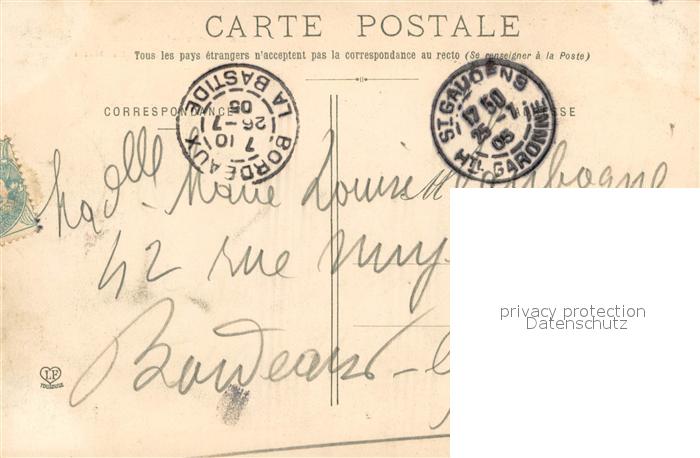 CARTE POSTALE
Tous les pays étrangers n'acceptent pas la correspondance au recto (Se renseigner à la Poste)
CORRESPONDANCE
BORDEAUX LA BASTIDE
7 10
26-7
05
ST GAUDENS
17 50
25-7
05
Hte GARONNE
Madlle Marie Louise
42 rue
Bordeaux
privacy protection
Datenschutz
LF
TOULOUSE